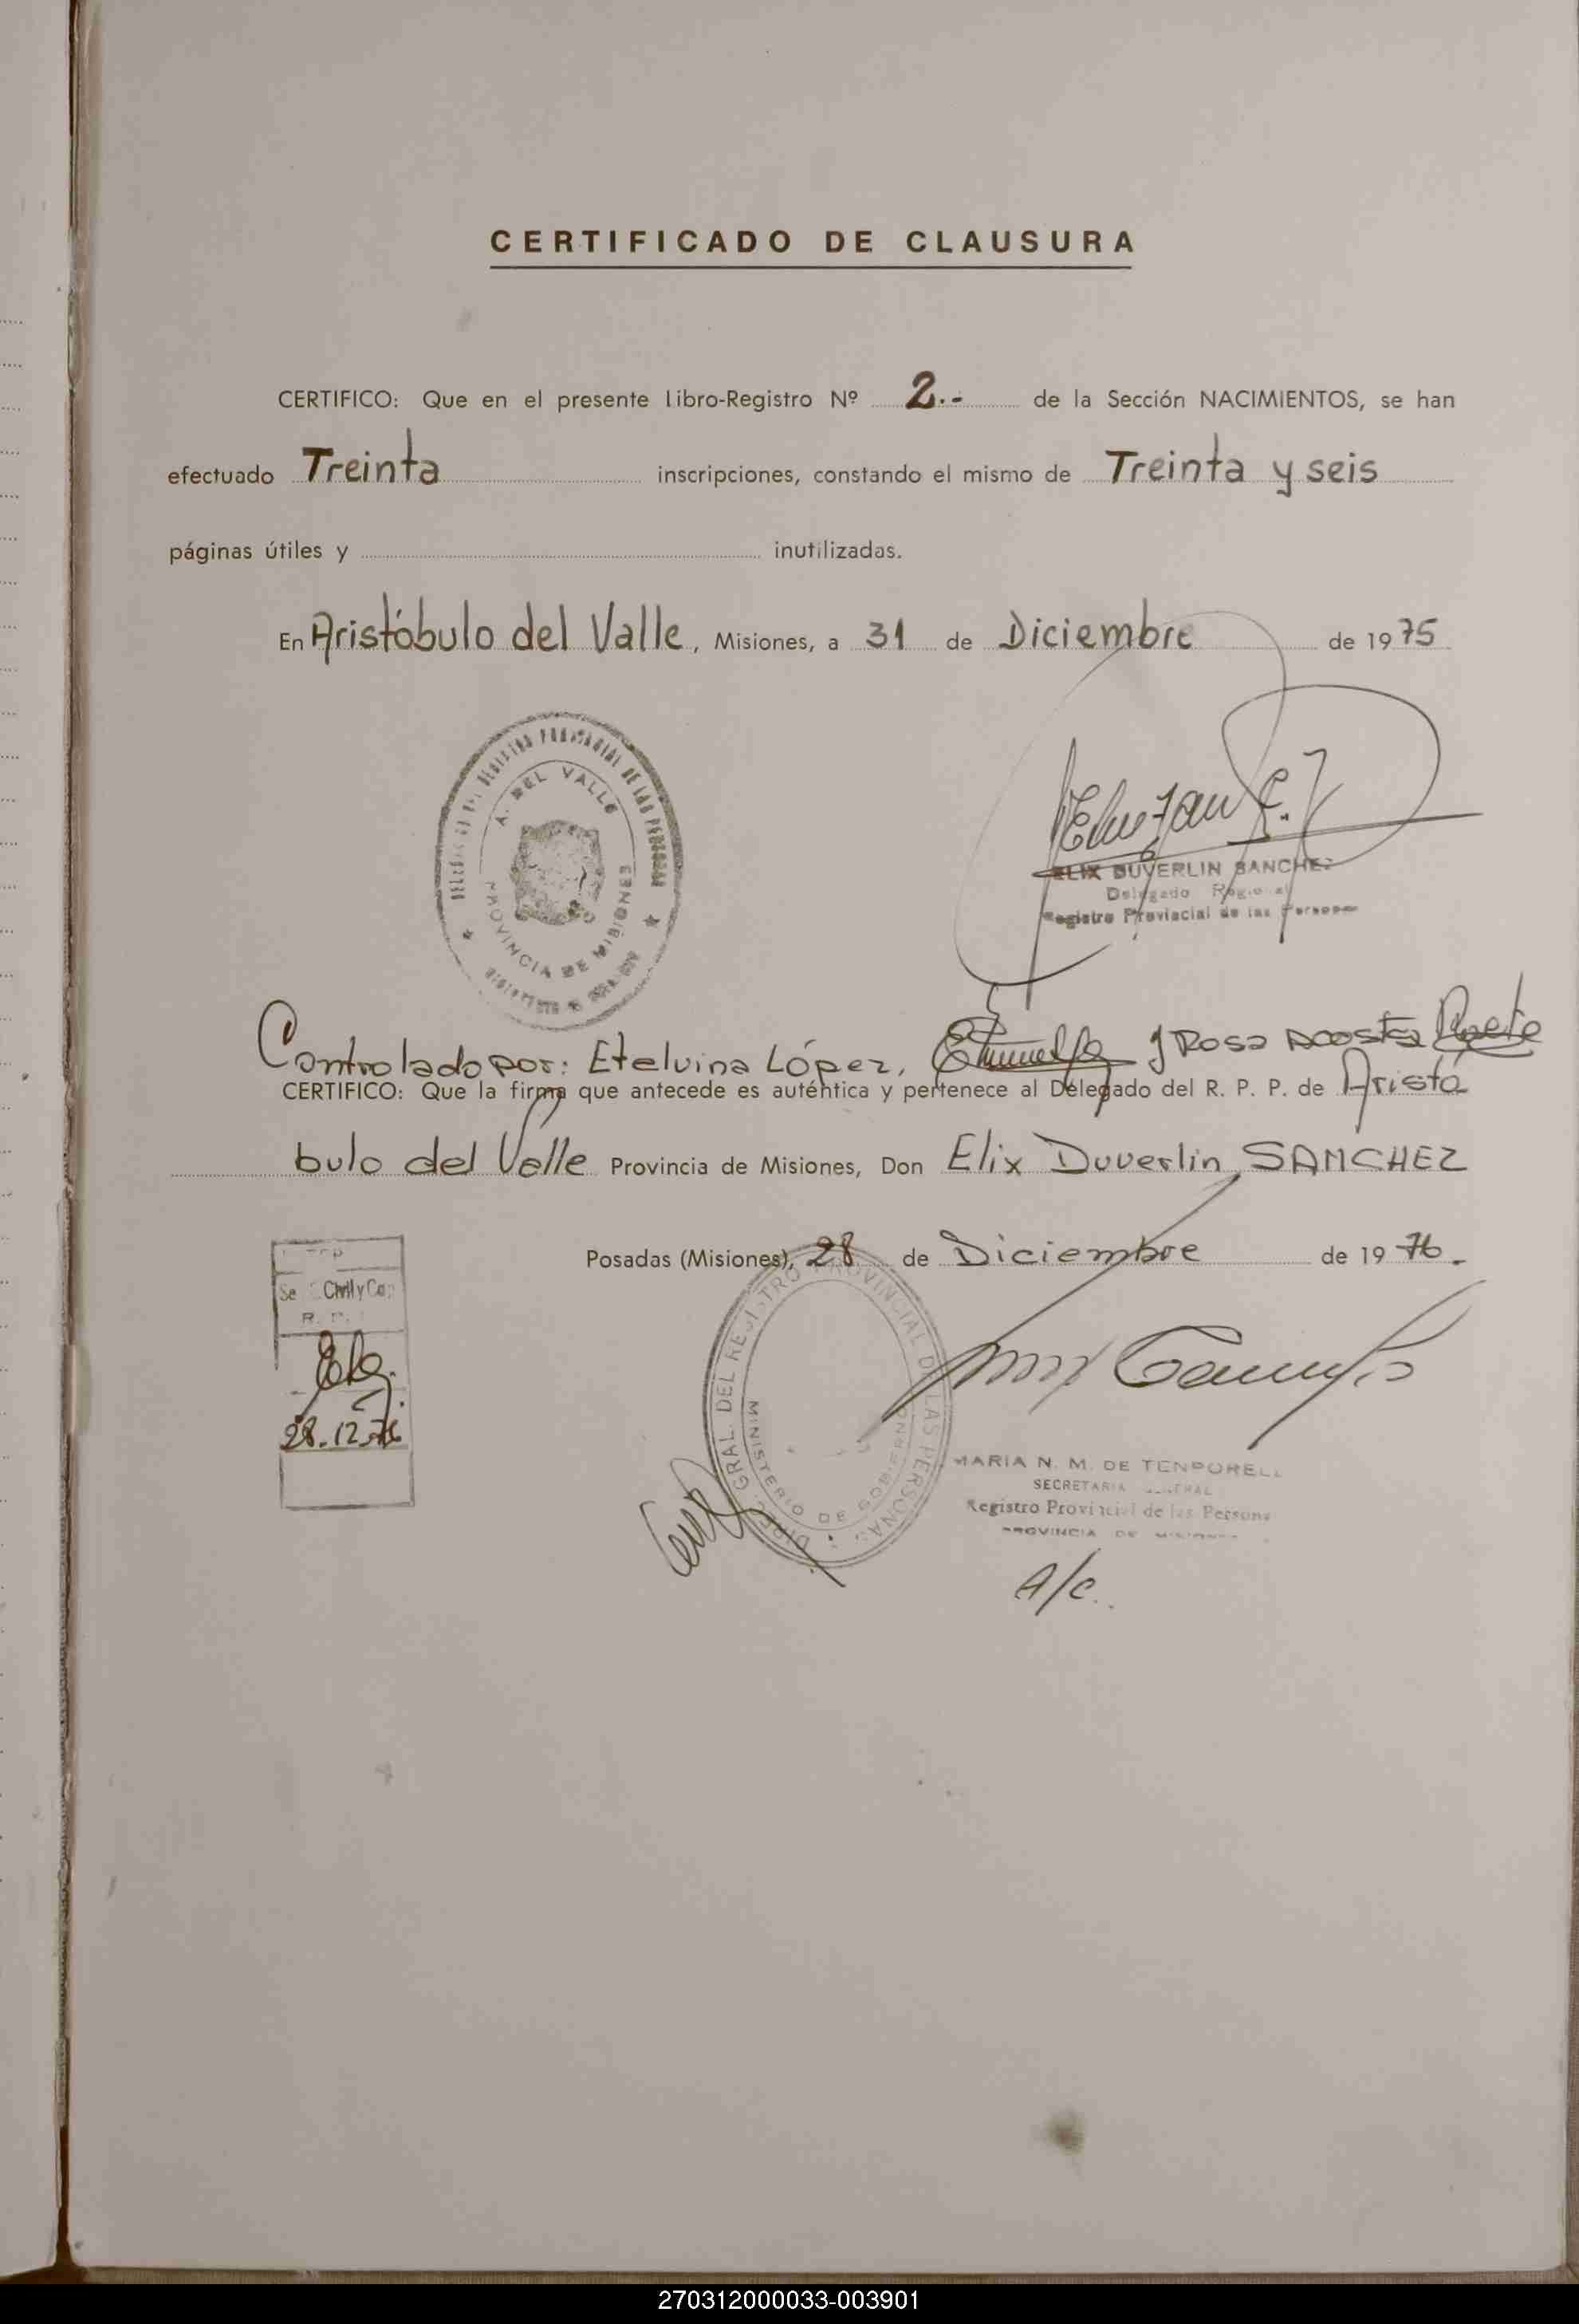 CERTIFICADO DE CLAUSURA
CERTIFICO: Que en el presente Libro-Registro Nº 2.- de la Sección NACIMIENTOS, se han
efectuado Treinta inscripciones, constando el mismo de Treinta y seis
páginas útiles y inutilizadas.
En Aristóbulo del Valle, Misiones, a 31 de Diciembre de 1975
REGISTRO PROVINCIAL DE LAS PERSONAS
A. DEL VALLE
PROVINCIA DE MISIONES
ELIX DUVERLIN SANCHEZ
Delegado
Registro Provincial de las Personas
Controlado por: Etelvina López, y Rosa Acosta
CERTIFICO: Que la firma que antecede es auténtica y pertenece al Delegado del R. P. P. de Aristó
bulo del Valle Provincia de Misiones, Don Elix Duverlin SANCHEZ
Posadas (Misiones), 28 de Diciembre de 1976.
Civil y Cap
28.12.76
GRAL. DEL REGISTRO PROVINCIAL DE LAS PERSONAS
MINISTERIO DE GOBIERNO
MARIA N. M. DE TEMPORELL
SECRETARIA GENERAL
Registro Provincial de las Persona
PROVINCIA DE MISIONES
A/C.
270312000033-003901